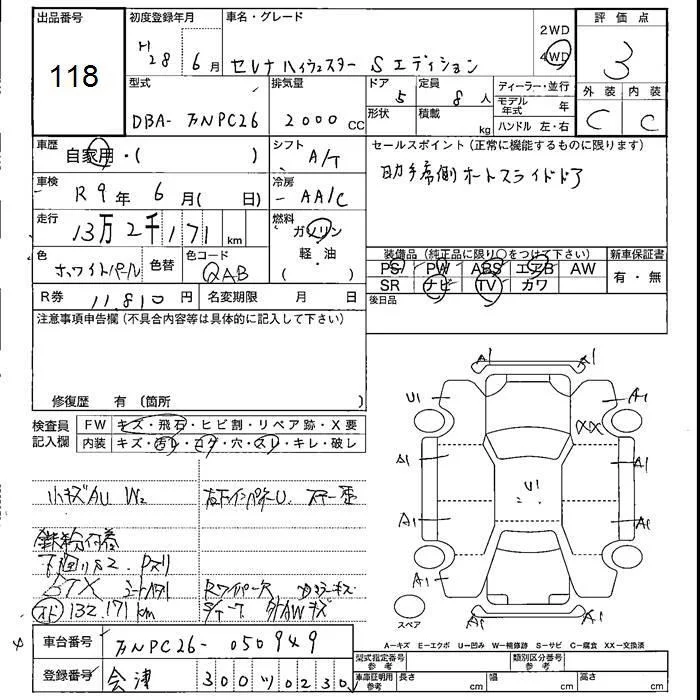 出品番号 初度登録年月 車名・グレード 2WD 評価点
118 H28 6月 セレナ ハイウェスター Sエディション 4WD 3
型式 排気量 ドア 定員 ディーラー・並行 外装 内装
DBA- カNPC26 2000 CC 5 8人 モデル年式 年 C C
形状 積載 kg ハンドル 左・右
車歴 自家用・( ) シフト A/T セールスポイント (正常に機能するものに限ります)
車検 R9年 6月( 日) 冷房 AA/C 助手席側オートスライドドア
走行 13万2千171 km 燃料 ガソリン 軽・油
色 ホワイトパール 色替 色コード QAB
装備品 (純正品に限り○をつけて下さい) 新車保証書
PS PW ABS エアB AW 有・無
SR ナビ TV カワ
R券 11,810円 名変期限 月 日 後日品
注意事項申告欄 (不具合内容等は具体的に記入して下さい)
修復歴 有 (箇所
検査員記入欄 FW キズ・飛石・ヒビ割・リペア跡・X要
内装 キズ・汚レ・コゲ・穴・スレ・キレ・破レ
A1 A1
U1 A1
XX
A1 A1
U1
A1 A1
A1
A1 A1
スペア
小キズAU W2
鉄粉付着
下回りS2.
オド 132,171km
A=キズ E=エクボ U=凹み W=補修跡 S=サビ C=腐食 XX=交換済
車台番号 カNPC26- 050949
型式指定番号 参考 類別区分番号 参考
登録番号 会津 300 ツ 0230
車庫証明用 参考 長さ cm 幅 cm 高さ cm